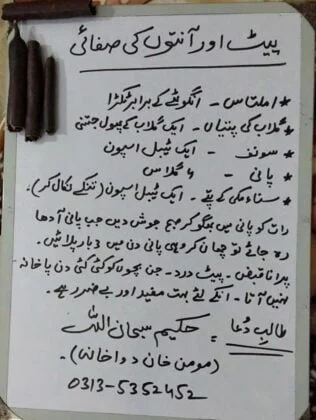 پیٹ اور آنتوں کی صفائی
* املتاس - انگوٹھے کے برابر ٹکڑا
* گلاب کی پتیاں - ایک گلاب کے پھول جتنی
* سونف - ایک ٹیبل اسپون
* پانی - ۶ گلاس
* سناء مکی کے پتے - ایک ٹیبل اسپون (تنکے نکال کر).
رات کو پانی میں بھگو کر صبح جوش دیں جب پانی آدھا
رہ جائے تو چھان کر وہی پانی دن میں 3 بار پلائیں.
پرانا قبض - پیٹ درد - جن بچوں کو کئی کئی دن پاخانہ
نہیں آتا - انکے لئے بہت مفید اور بے ضرر ہے.
طالبِ دُعا = حکیم سبحان اللہ
(مومن خان دواخانہ).
0313-5352452